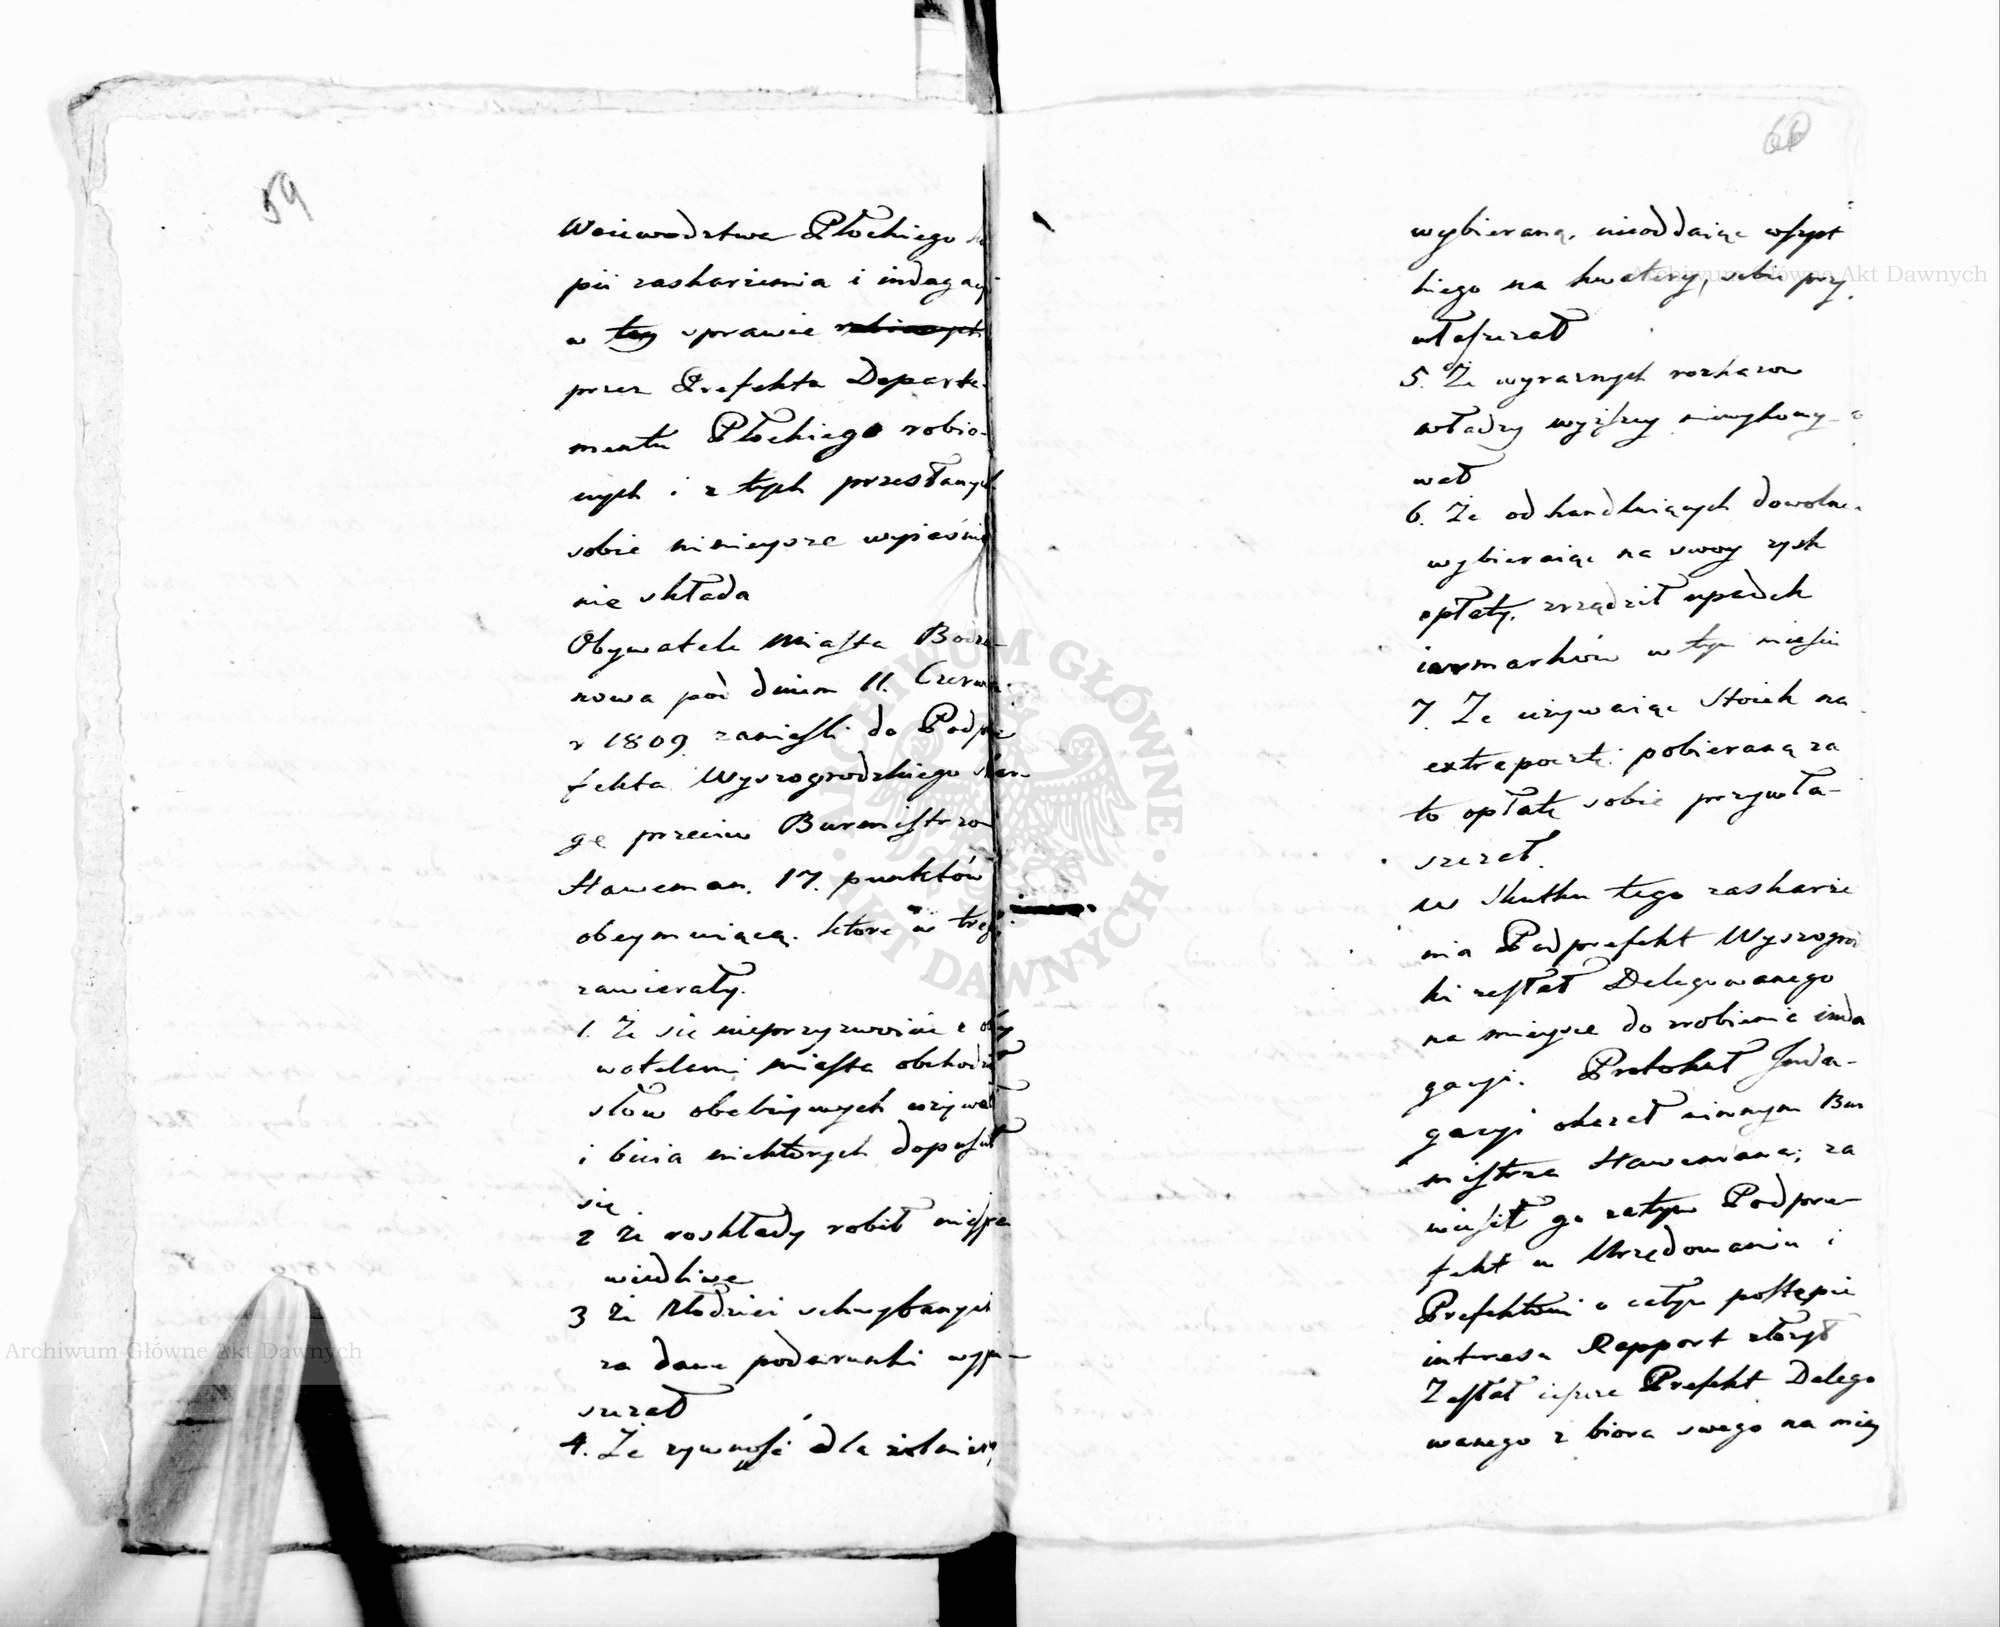 59
Woiewodztwa Płockiego
pii zaskarżenia i indagacyi
w tey sprawie robionych
przez Prefekta Departa-
mentu Płockiego robio-
nych i z tych przesłanych
sobie ninieysze wyiaśnie
nie składa
Obywatele Miasta Bodza
nowa pod dniem 11. Czerwca
r 1809 zanieśli do Podpre
fekta Wyszogrodzkiego skar-
gę przeciw Burmistrzowi
Haweman. 17. punktów
obeymuiącą. które w treści
zawierały.
1. Że się nieprzyzwoicie z oby
watelami miasta obchodził
słów obelżywych używał
i bicia niektórych dopuścił
się
2 że rozkłady robił niespra
wiedliwe
3 że złodziei schwytanych
za dane podarunki wypu-
szczał
4. Że żywność dla żołnierzy
60
wybieraną, nieoddaiąc wszyst
kiego na kwatery, sobie przy
właszczał
5. Że wyraznych rozkazow
władzy wyższey niewykony-
wał
6. Że od handluiących dowolne
wybieraiąc na swoy zysk
opłaty, zrządził upadek
iarmarków w tym mieście
7. Że używaiąc Stoiek na
extrapocztę pobieraną za
to opłatę sobie przywła-
szczał.
w Skutku tego zaskarże
nia Podprefekt Wyszogrodz
ki zesłał Delegowanego
na mieysce do zrobienia inda
gacyi. Protokuł Inda-
gacyi okazał winnym Bur
mistrza Hawemana; za
wiesił go zatym Podpre-
fekt w Urzędowaniu i
Prefektowi o całym postępie
interesu Rapport złożył
Zesłał ieszcze Prefekt Delego
wanego z biora swego na miey